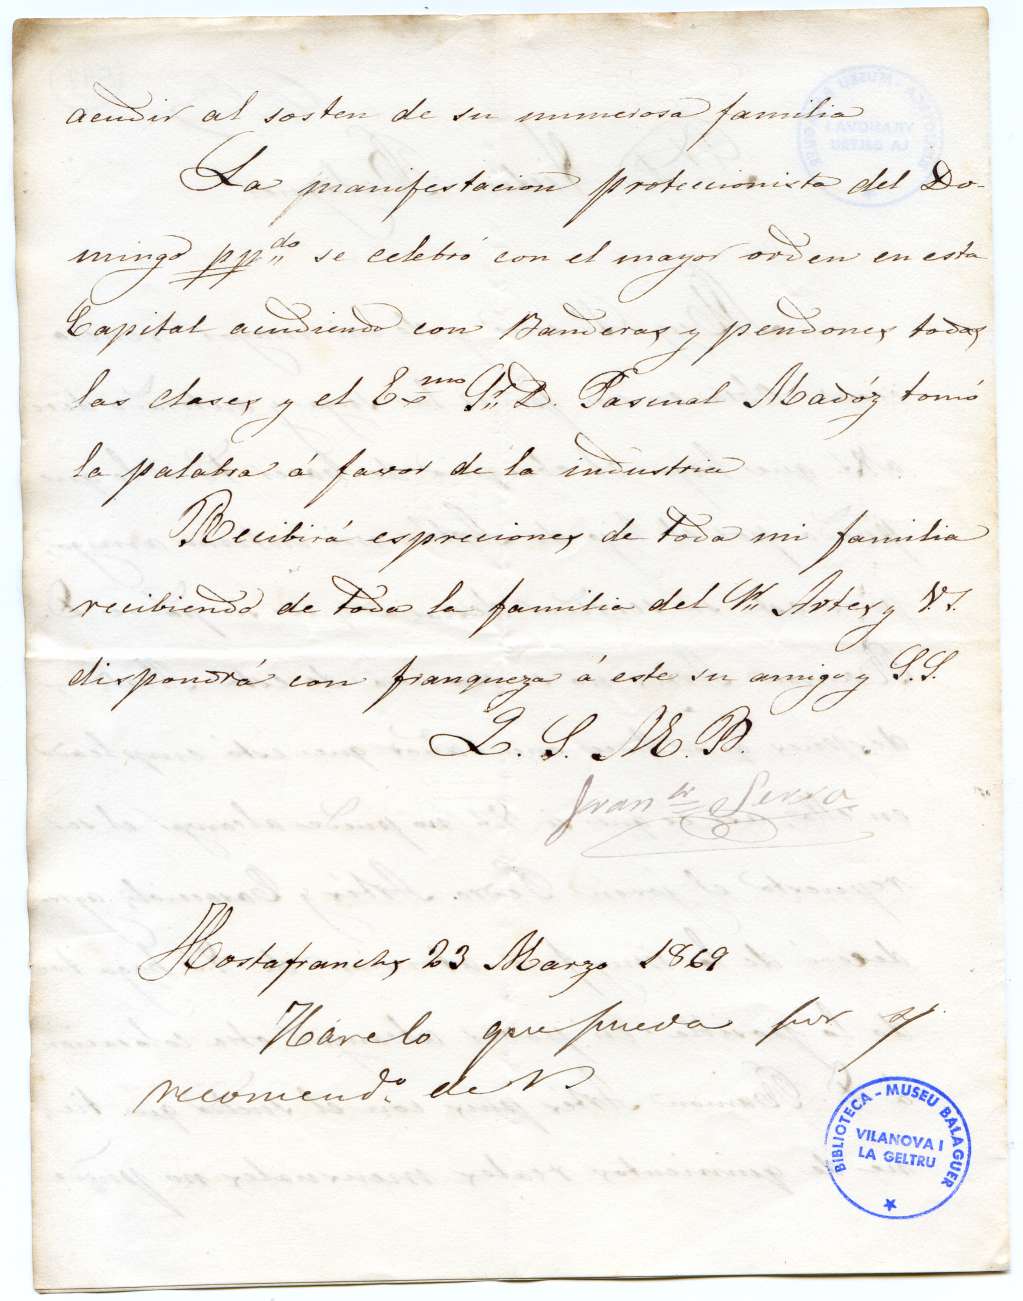 acudir al sosten de su numerosa familia
La manifestacion proteccionista del Do-
mingo pp.do se celebró con el mayor orden en esta
Capital acudiendo con Banderas y pendones todas
las clases y el Exmo Sr. D. Pascual Madóz tomó
la palabra á favor de la industria
Recibirá espreciones de toda mi familia
recibiendo de toda la familia del Sr. Artes y V.S.
dispondrá con franqueza á este su amigo y S.S.
Q. S. M. B.
Fran.co Serra
Hostafranchs 23 Marzo 1869
Haré lo que pueda por
recomend.o de V
BIBLIOTECA - MUSEU BALAGUER
VILANOVA I
LA GELTRU